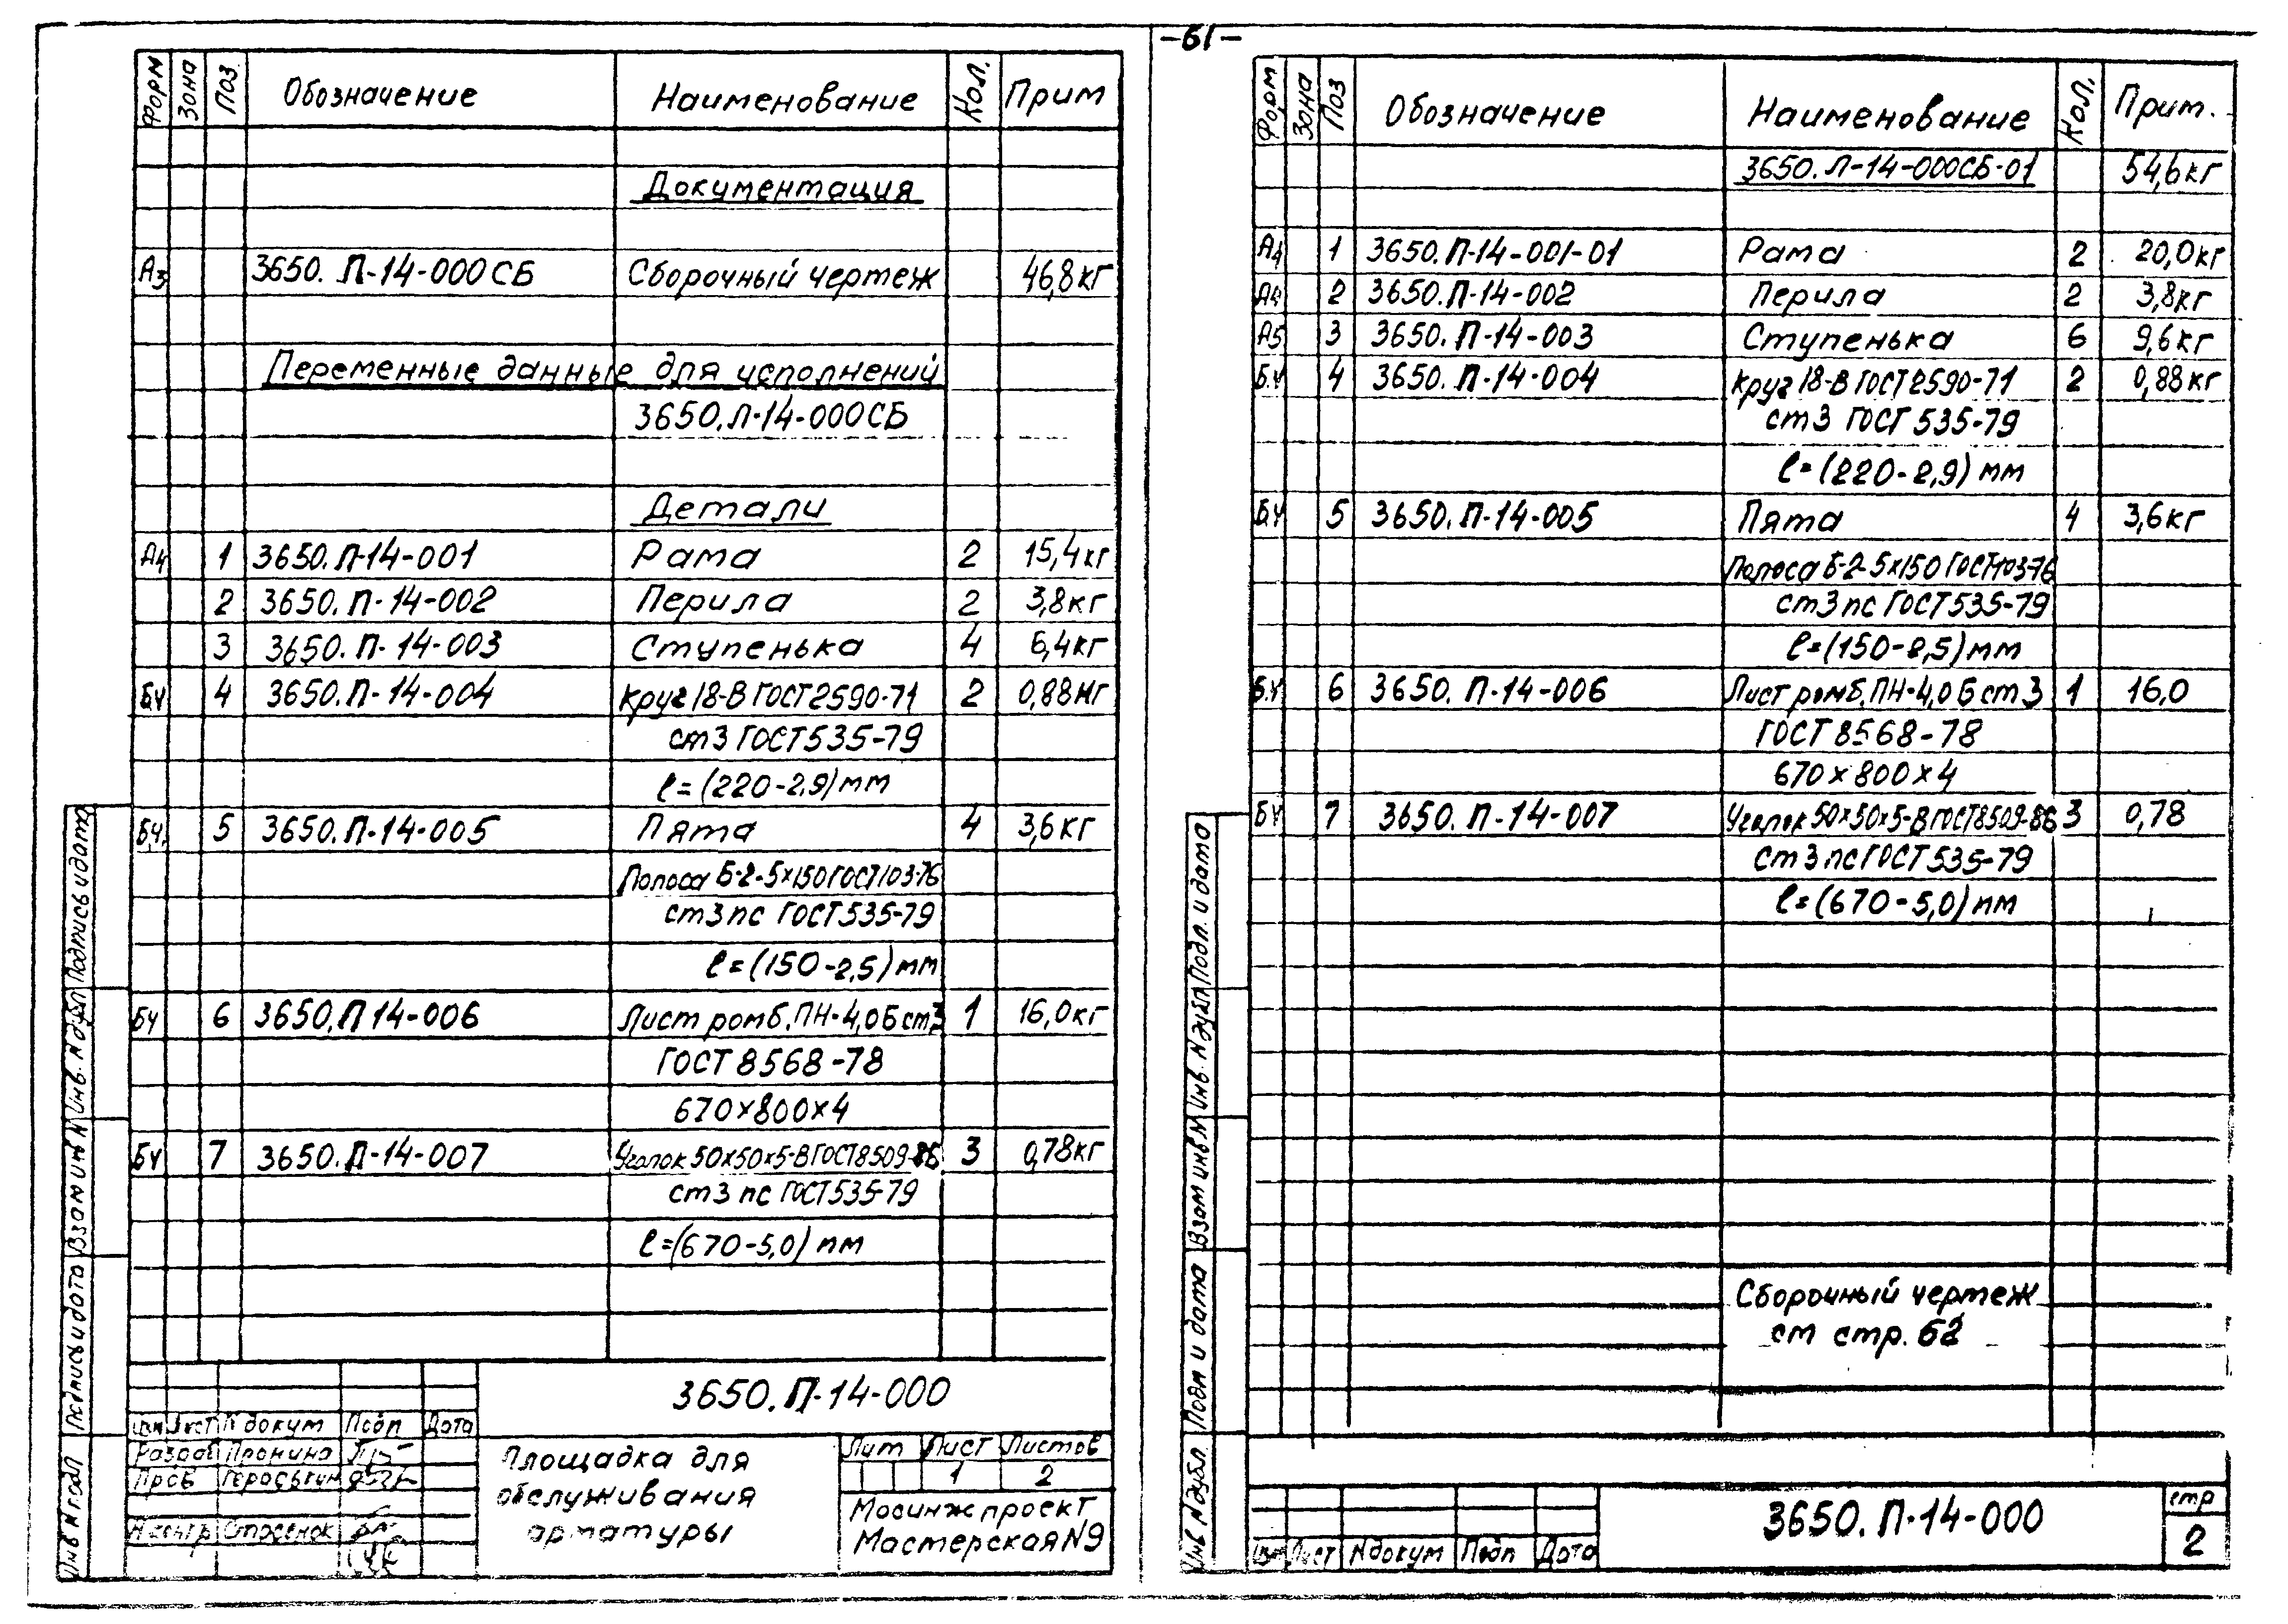 -61-
Форм Зона Поз Обозначение Наименование Кол. Прим
Документация
А3 3650. П-14-000СБ Сборочный чертеж 46,8кг
Переменные данные для исполнений
3650.П-14-000СБ
Детали
А4 1 3650.П-14-001 Рама 2 15,4кг
2 3650.П-14-002 Перила 2 3,8кг
3 3650.П-14-003 Ступенька 4 6,4кг
БЧ 4 3650.П-14-004 Круг 18-В ГОСТ 2590-71 2 0,88кг
ст3 ГОСТ 535-79
ℓ=(220-2,9)мм
БЧ. 5 3650.П-14-005 Пята 4 3,6кг
Полоса Б-2-5х150 ГОСТ103-76
ст3пс ГОСТ535-79
ℓ=(150-2,5)мм
БЧ 6 3650.П14-006 Лист ромб.ПН-4,0Бст3 1 16,0кг
ГОСТ 8568-78
670х800х4
БЧ 7 3650.П-14-007 Уголок 50х50х5-В ГОСТ8509-86 3 0,78кг
ст3 пс ГОСТ535-79
ℓ=(670-5,0)мм
3650.П-14-000
Изм Лист N докум Подп Дата
Разраб Пронина
Пров
Н.контр
Площадка для
обслуживания
арматуры
Лит Лист Листов
1 2
Мосинжпроект
Мастерская N9
Инв N подл Подпись и дата Взам инв N Инв. N дубл Подпись и дата
Форм Зона Поз Обозначение Наименование Кол. Прим.
3650.П-14-000СБ-01 54,6кг
А4 1 3650.П-14-001-01 Рама 2 20,0кг
А4 2 3650.П-14-002 Перила 2 3,8кг
А5 3 3650.П-14-003 Ступенька 6 9,6кг
Б.Ч 4 3650.П-14-004 Круг 18-В ГОСТ2590-71 2 0,88кг
ст3 ГОСТ 535-79
ℓ=(220-2,9)мм
БЧ 5 3650.П-14-005 Пята 4 3,6кг
Полоса Б-2-5х150 ГОСТ103-76
ст3пс ГОСТ535-79
ℓ=(150-2,5)мм
Б.Ч 6 3650.П-14-006 Лист ромб.ПН-4,0Бст3 1 16,0
ГОСТ 8568-78
670х800х4
БЧ 7 3650.П-14-007 Уголок 50х50х5-В ГОСТ8509-86 3 0,78
Ст3пс ГОСТ535-79
ℓ=(670-5,0)мм
Сборочный чертеж
см стр. 62
3650.П-14-000
стр
2
Изм Лист N докум Подп Дата
Инв N дубл. Подп и дата Взам инв N Инв. N дубл Подп. и дата